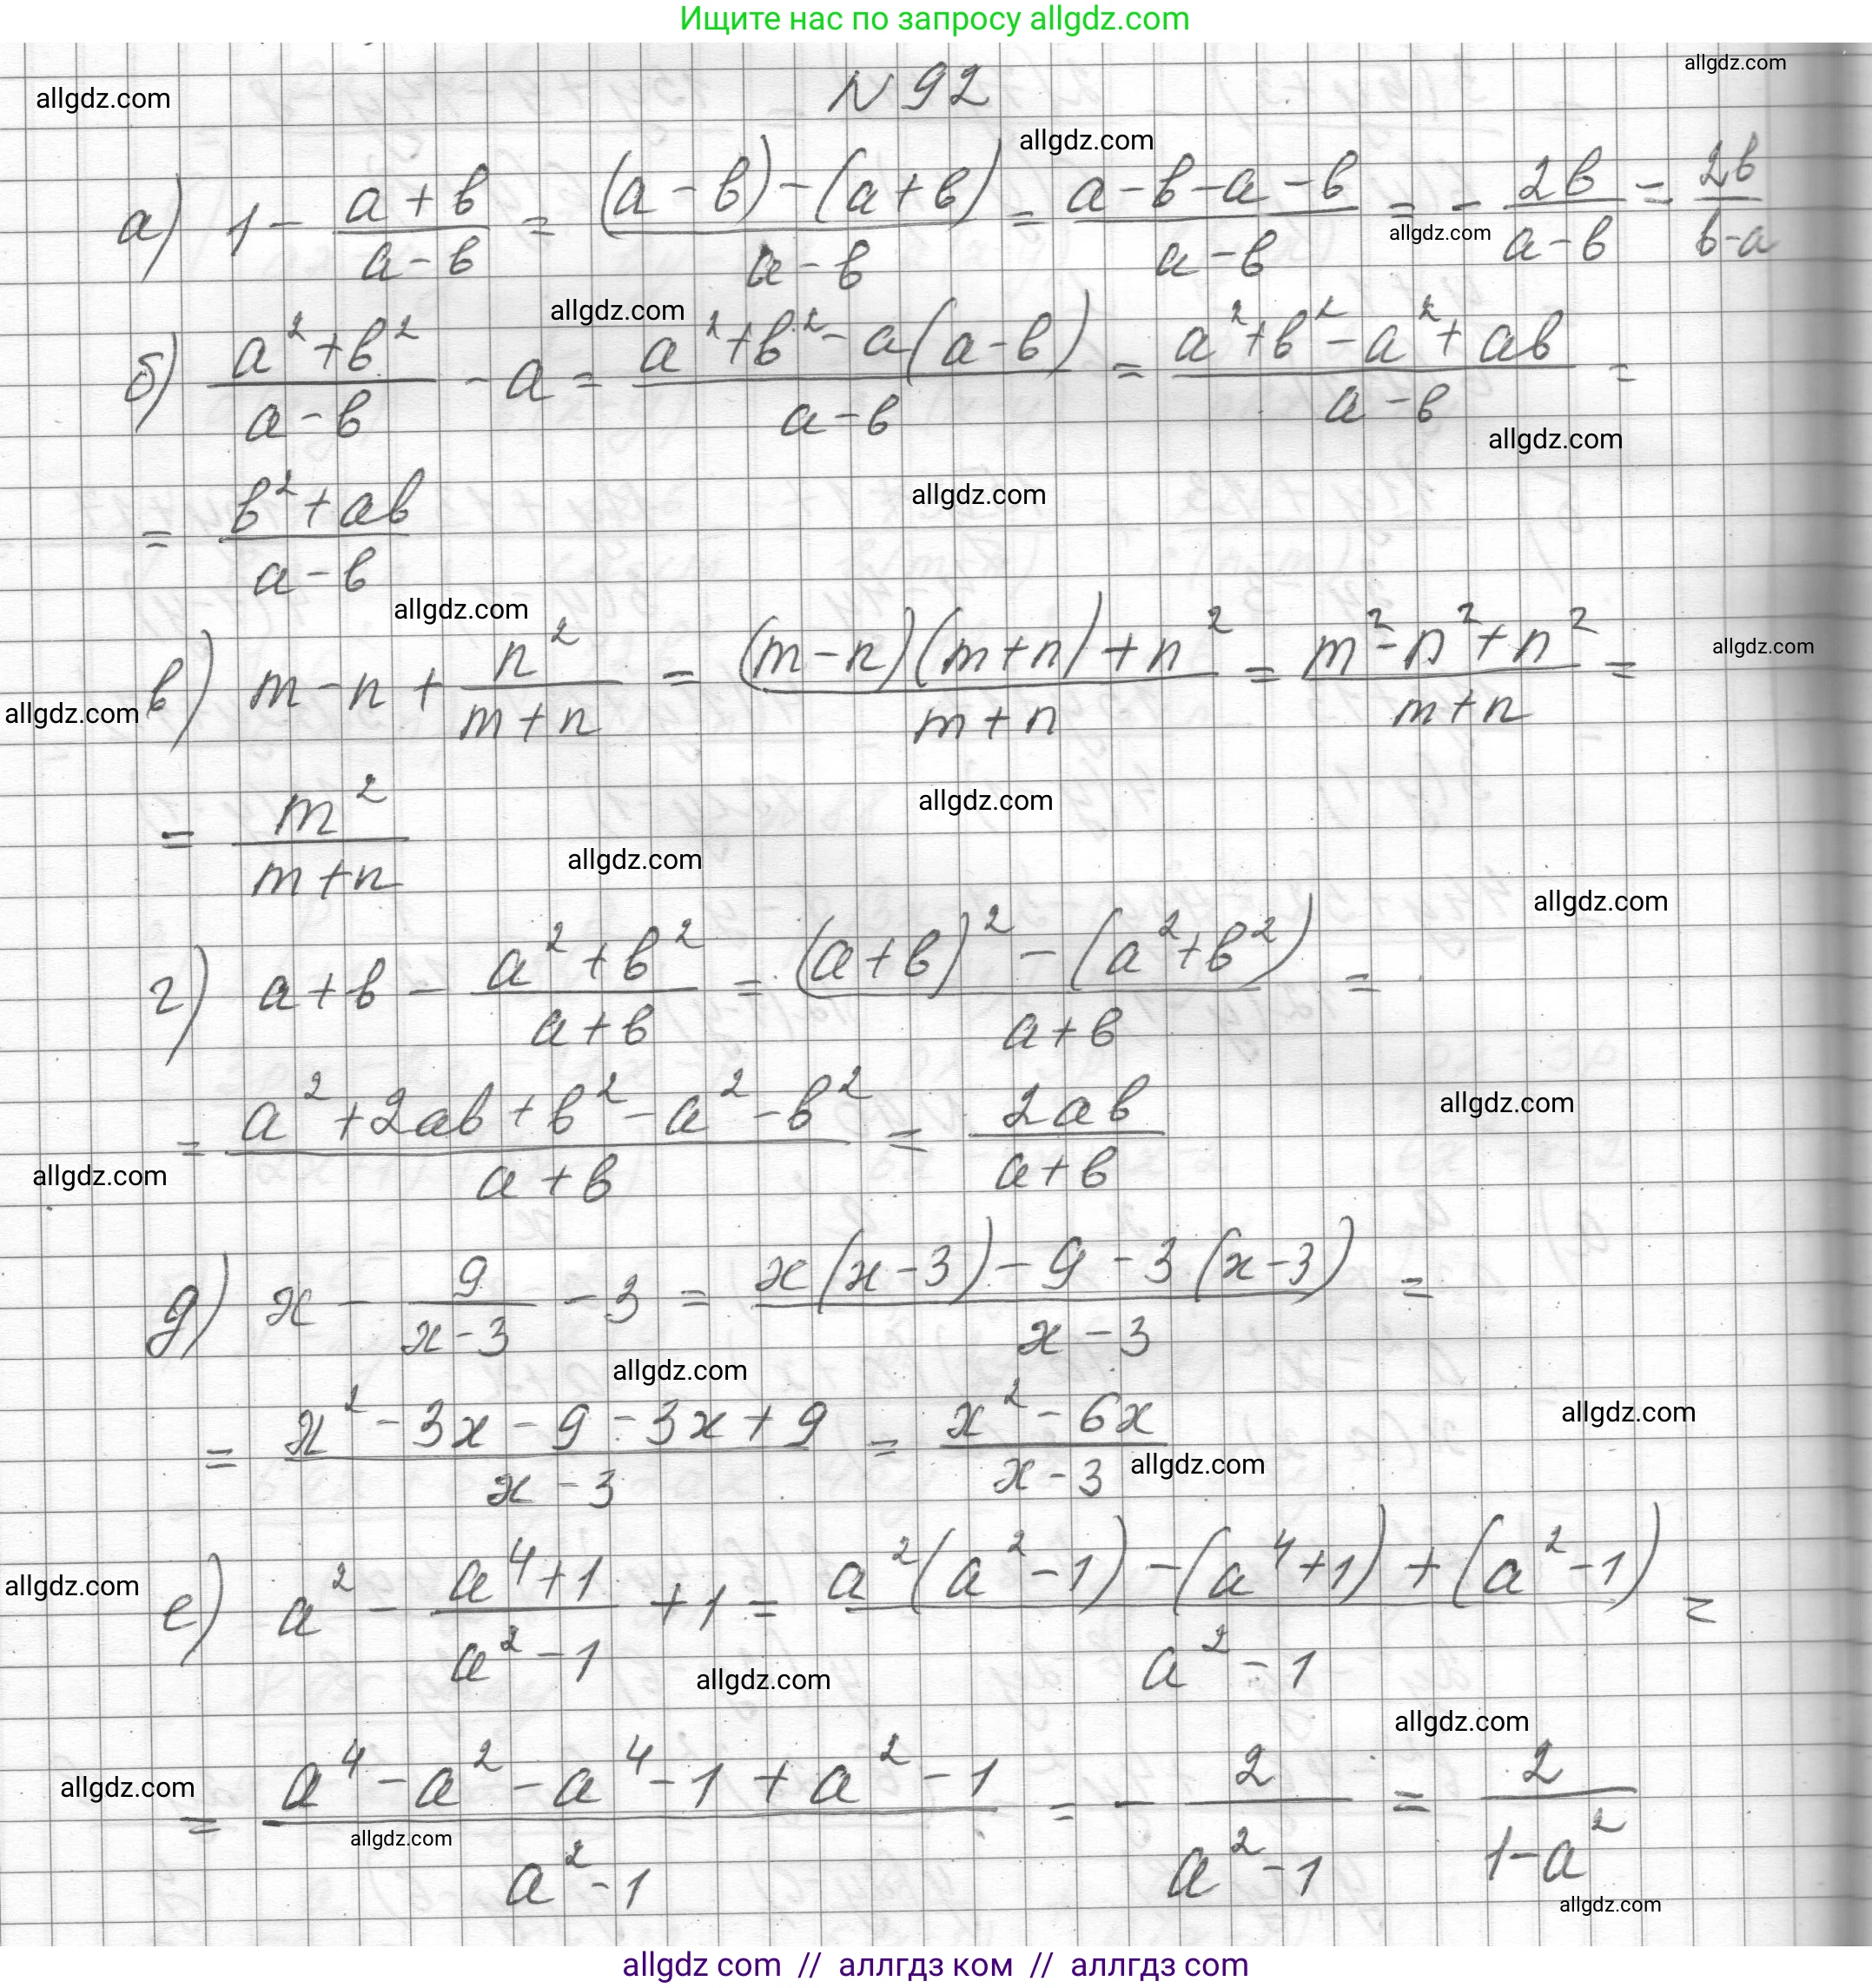 Ищите нас по запросу allgdz.com
allgdz.com
allgdz.com
N 92
allgdz.com
а) 1 - (a+b)/(a-b) = ((a-b)-(a+b))/(a-b) = (a-b-a-b)/(a-b) = - 2b/(a-b) = 2b/(b-a)
allgdz.com
allgdz.com
б) (a²+b²)/(a-b) - a = (a²+b²-a(a-b))/(a-b) = (a²+b²-a²+ab)/(a-b) =
allgdz.com
allgdz.com
= (b²+ab)/(a-b)
allgdz.com
allgdz.com
в) m-n+ n²/(m+n) = ((m-n)(m+n)+n²)/(m+n) = (m²-n²+n²)/(m+n) =
allgdz.com
allgdz.com
= m²/(m+n)
allgdz.com
allgdz.com
г) a+b - (a²+b²)/(a+b) = ((a+b)²-(a²+b²))/(a+b) =
allgdz.com
= (a²+2ab+b²-a²-b²)/(a+b) = 2ab/(a+b)
allgdz.com
д) x - 9/(x-3) - 3 = (x(x-3)-9-3(x-3))/(x-3) =
allgdz.com
allgdz.com
= (x²-3x-9-3x+9)/(x-3) = (x²-6x)/(x-3)
allgdz.com
allgdz.com
е) a² - (a⁴+1)/(a²-1) + 1 = (a²(a²-1)-(a⁴+1)+(a²-1))/(a²-1) =
allgdz.com
allgdz.com
allgdz.com
= (a⁴-a²-a⁴-1+a²-1)/(a²-1) = - 2/(a²-1) = 2/(1-a²)
allgdz.com
allgdz.com
allgdz com // аллгдз ком // аллгдз com